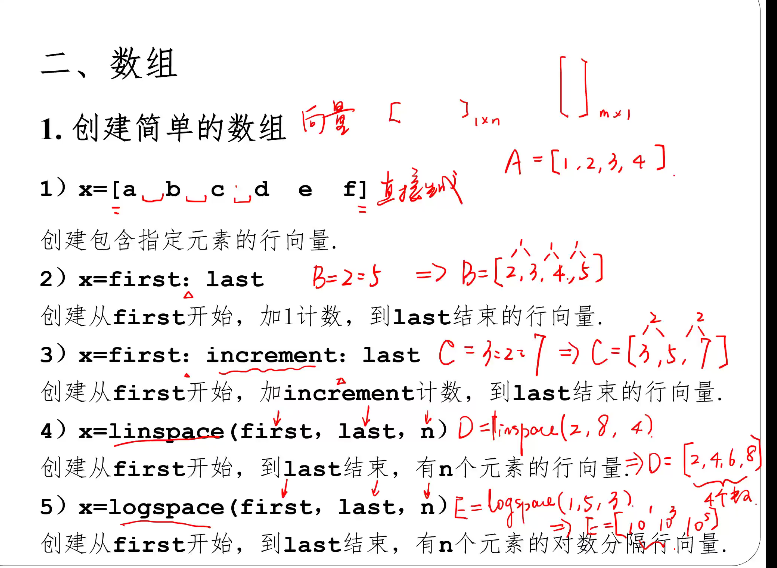 二、数组
1. 创建简单的数组 向量 [ ]1×n [ ]m×1
A=[1,2,3,4]
1）x=[a b c d e f] 直接生成
创建包含指定元素的行向量.
2）x=first：last B=2:5 ⇒ B=[2,3,4,5]
1 1 1
创建从first开始，加1计数，到last结束的行向量.
3）x=first：increment：last C=3:2:7 ⇒ C=[3,5,7]
2 2
创建从first开始，加increment计数，到last结束的行向量.
4）x=linspace(first，last，n) D=linspace(2,8,4)
创建从first开始，到last结束，有n个元素的行向量. ⇒D=[2,4,6,8]
5）x=logspace(first，last，n) E=logspace(1,5,3) 4个
⇒ E=[10¹ 10³ 10⁵]
创建从first开始，到last结束，有n个元素的对数分隔行向量.